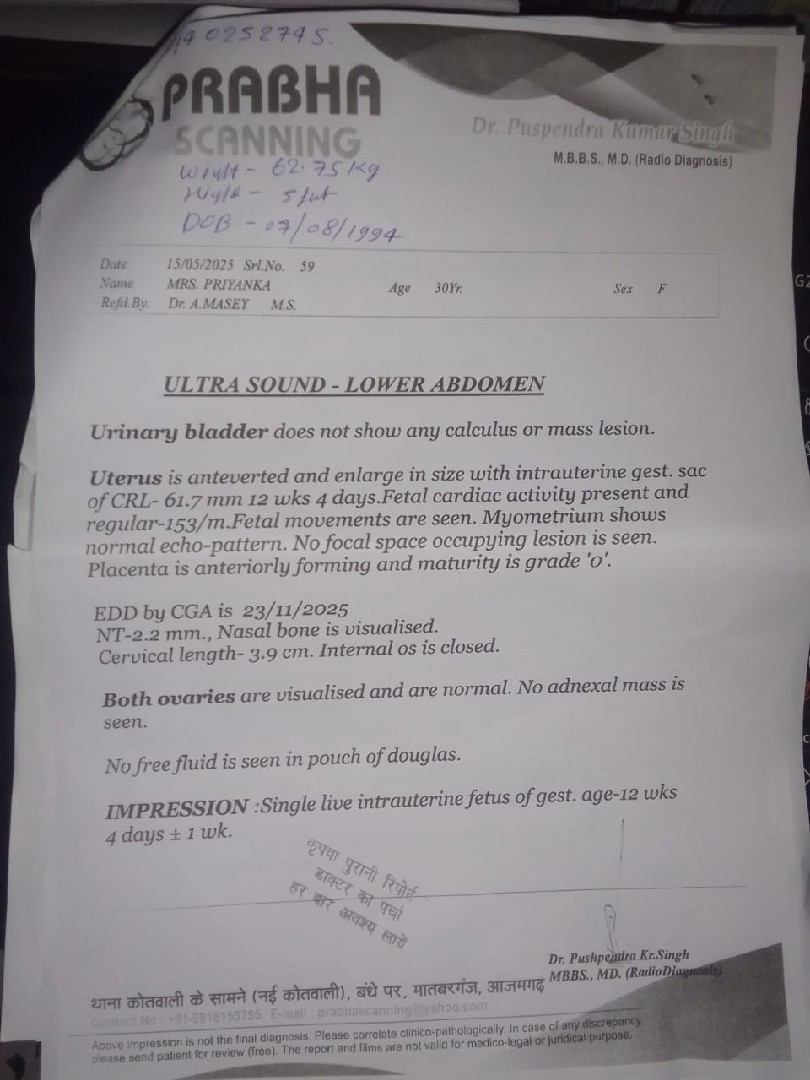 140252795.
PRABHA
SCANNING
Dr. Puspendra Kumar Singh
M.B.B.S., M.D. (Radio Diagnosis)
Wight - 62.75 kg
Hight - 5 fut
DOB - 07/08/1994
Date 15/05/2025 Srl.No. 59
Name MRS. PRIYANKA Age 30Yr. Sex F
Refd.By. Dr. A.MASEY M.S.
ULTRA SOUND - LOWER ABDOMEN
Urinary bladder does not show any calculus or mass lesion.
Uterus is anteverted and enlarge in size with intrauterine gest. sac
of CRL- 61.7 mm 12 wks 4 days.Fetal cardiac activity present and
regular-153/m.Fetal movements are seen. Myometrium shows
normal echo-pattern. No focal space occupying lesion is seen.
Placenta is anteriorly forming and maturity is grade 'o'.
EDD by CGA is 23/11/2025
NT-2.2 mm., Nasal bone is visualised.
Cervical length- 3.9 cm. Internal os is closed.
Both ovaries are visualised and are normal. No adnexal mass is
seen.
No free fluid is seen in pouch of douglas.
IMPRESSION :Single live intrauterine fetus of gest. age-12 wks
4 days ± 1 wk.
कृपया पुरानी रिपोर्ट
डाक्टर का पर्चा
हर बार अवश्य लावें
Dr. Pushpendra Kr.Singh
MBBS., MD. (RadioDiagnosis)
थाना कोतवाली के सामने (नई कोतवाली), बंधे पर, मातबरगंज, आजमगढ़
Contact No.: +91-9918155755, E-mail : prabhascanning@yahoo.com
Above impression is not the final diagnosis. Please correlate clinico-pathologically. In case of any discrepancy,
please send patient for review (free). The report and films are not valid for medico-legal or juridical purpose.